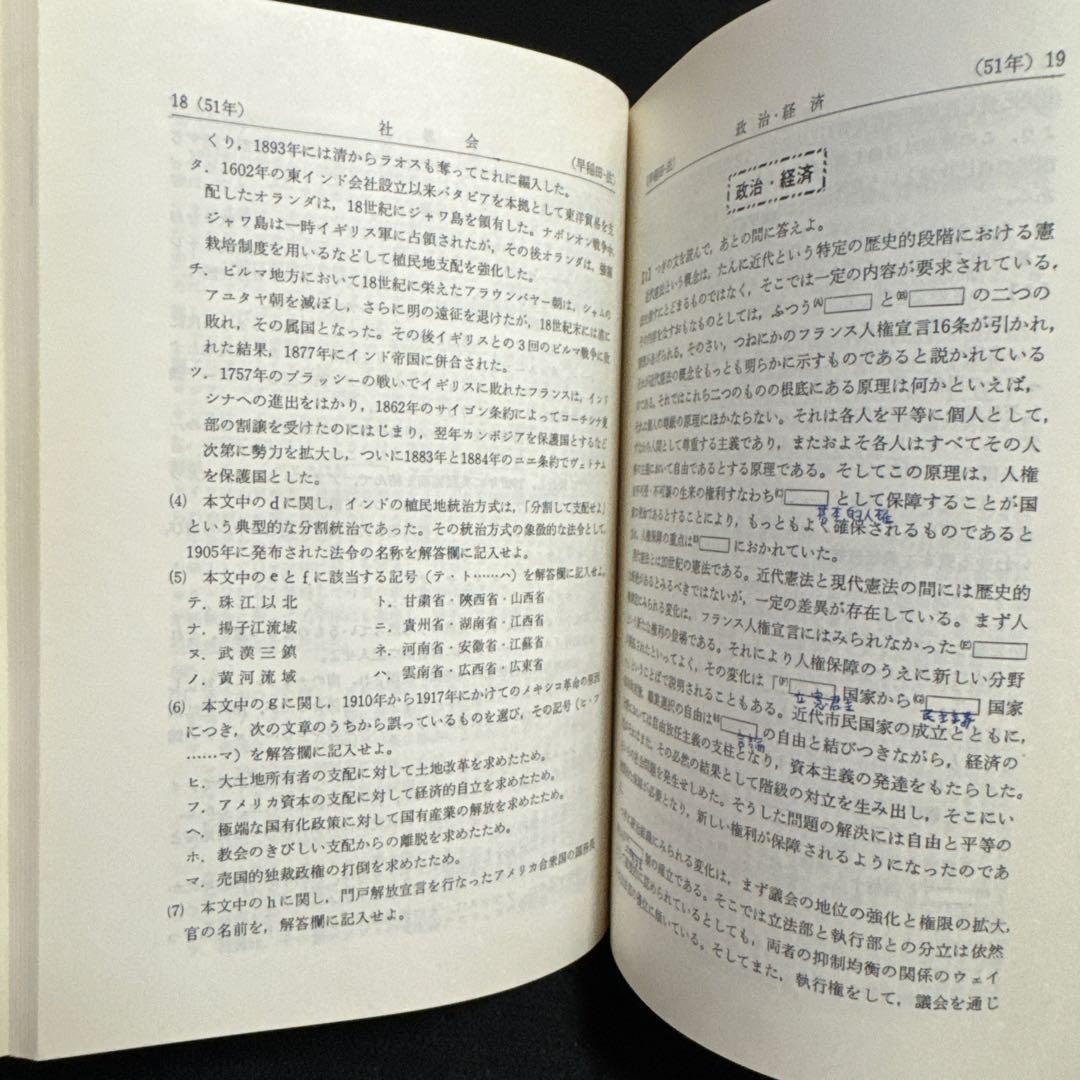 18 (51年)
社会
(早稲田・法)
くり，1893年には清からラオスも奪ってこれに編入した。
タ．1602年の東インド会社設立以来バタビアを本拠として東洋貿易を支
配したオランダは，18世紀にジャワ島を領有した。ナポレオン戦争中，
ジャワ島は一時イギリス軍に占領されたが，その後オランダは，強制
栽培制度を用いるなどして植民地支配を強化した。
チ．ビルマ地方において18世紀に栄えたアラウンパヤー朝は，シャムの
アユタヤ朝を滅ぼし，さらに明の遠征を退けたが，18世紀末には清に
敗れ，その属国となった。その後イギリスとの3回のビルマ戦争に敗
れた結果，1877年にインド帝国に併合された。
ツ．1757年のプラッシーの戦いでイギリスに敗れたフランスは，インド
シナへの進出をはかり，1862年のサイゴン条約によってコーチシナ東
部の割譲を受けたのにはじまり，翌年カンボジアを保護国とするなど
次第に勢力を拡大し，ついに1883年と1884年のユエ条約でヴェトナム
を保護国とした。
(4) 本文中のdに関し，インドの植民地統治方式は，「分割して支配せよ」
という典型的な分割統治であった。その統治方式の象徴的な法令として，
1905年に発布された法令の名称を解答欄に記入せよ。
(5) 本文中のeとfに該当する記号（テ・ト……ハ）を解答欄に記入せよ。
テ．珠江以北 ト．甘粛省・陝西省・山西省
ナ．揚子江流域 ニ．貴州省・湖南省・江西省
ヌ．武漢三鎮 ネ．河南省・安徽省・江蘇省
ノ．黄河流域 ハ．雲南省・広西省・広東省
(6) 本文中のgに関し，1910年から1917年にかけてのメキシコ革命の原因
につき，次の文章のうちから誤っているものを選び，その記号（ヒ・フ
……マ）を解答欄に記入せよ。
ヒ．大土地所有者の支配に対して土地改革を求めたため。
フ．アメリカ資本の支配に対して経済的自立を求めたため。
ヘ．極端な国有化政策に対して国有産業の解放を求めたため。
ホ．教会のきびしい支配からの離脱を求めたため。
マ．売国的独裁政権の打倒を求めたため。
(7) 本文中のhに関し，門戸開放宣言を行なったアメリカ合衆国の国務長
官の名前を，解答欄に記入せよ。
(51年) 19
政治・経済
(早稲田・法)
政治・経済
〔1〕つぎの文を読んで，あとの問に答えよ。
近代憲法という概念は，たんに近代という特定の歴史的段階における憲
にとどまるものではなく，そこでは一定の内容が要求されている。
内容をなすおもなものとしては，ふつう(A) と(B) の二つの
があげられる。そのさい，つねにかのフランス人権宣言16条が引かれ，
近代憲法の概念をもっとも明らかに示すものであると説かれている
それではこれら二つのものの根底にある原理は何かといえば，
の原理にほかならない。それは各人を平等に個人として，
人間として尊重する主義であり，またおよそ各人はすべてその人
において自由であるとする原理である。そしてこの原理は，人権
不可譲の生来の権利すなわち(C) として保障することが国
基本的人権
であるとすることにより，もっともよく確保されるものであると
人権保障の重点は(D) におかれていた。
とは20世紀の憲法である。近代憲法と現代憲法の間には歴史的
があるとみるべきではないが，一定の差異が存在している。まず人
にみられる変化は，フランス人権宣言にはみられなかった(E)
という新たな権利の登場である。それにより人権保障のうえに新しい分野
されたといってよく，その変化は「(F) 国家から(G) 国家
立憲君主 民主主義
ということばで説明されることもある。近代市民国家の成立とともに，
職業選択の自由は(H) の自由と結びつきながら，経済の
においては自由放任主義の支柱となり，資本主義の発達をもたらした。
その必然の結果として階級の対立を生み出し，そこにい
問題を発生せしめた。そうした問題の解決には自由と平等の
が必要となり，新しい権利が保障されるようになったのであ
にみられる変化は，まず議会の地位の強化と権限の拡大，
の成立である。そこでは立法部と執行部との分立は依然
に認められているとしても，両者の抑制均衡の関係のウェイ
の優位に傾いている。そしてまた，執行権をして，議会を通じ